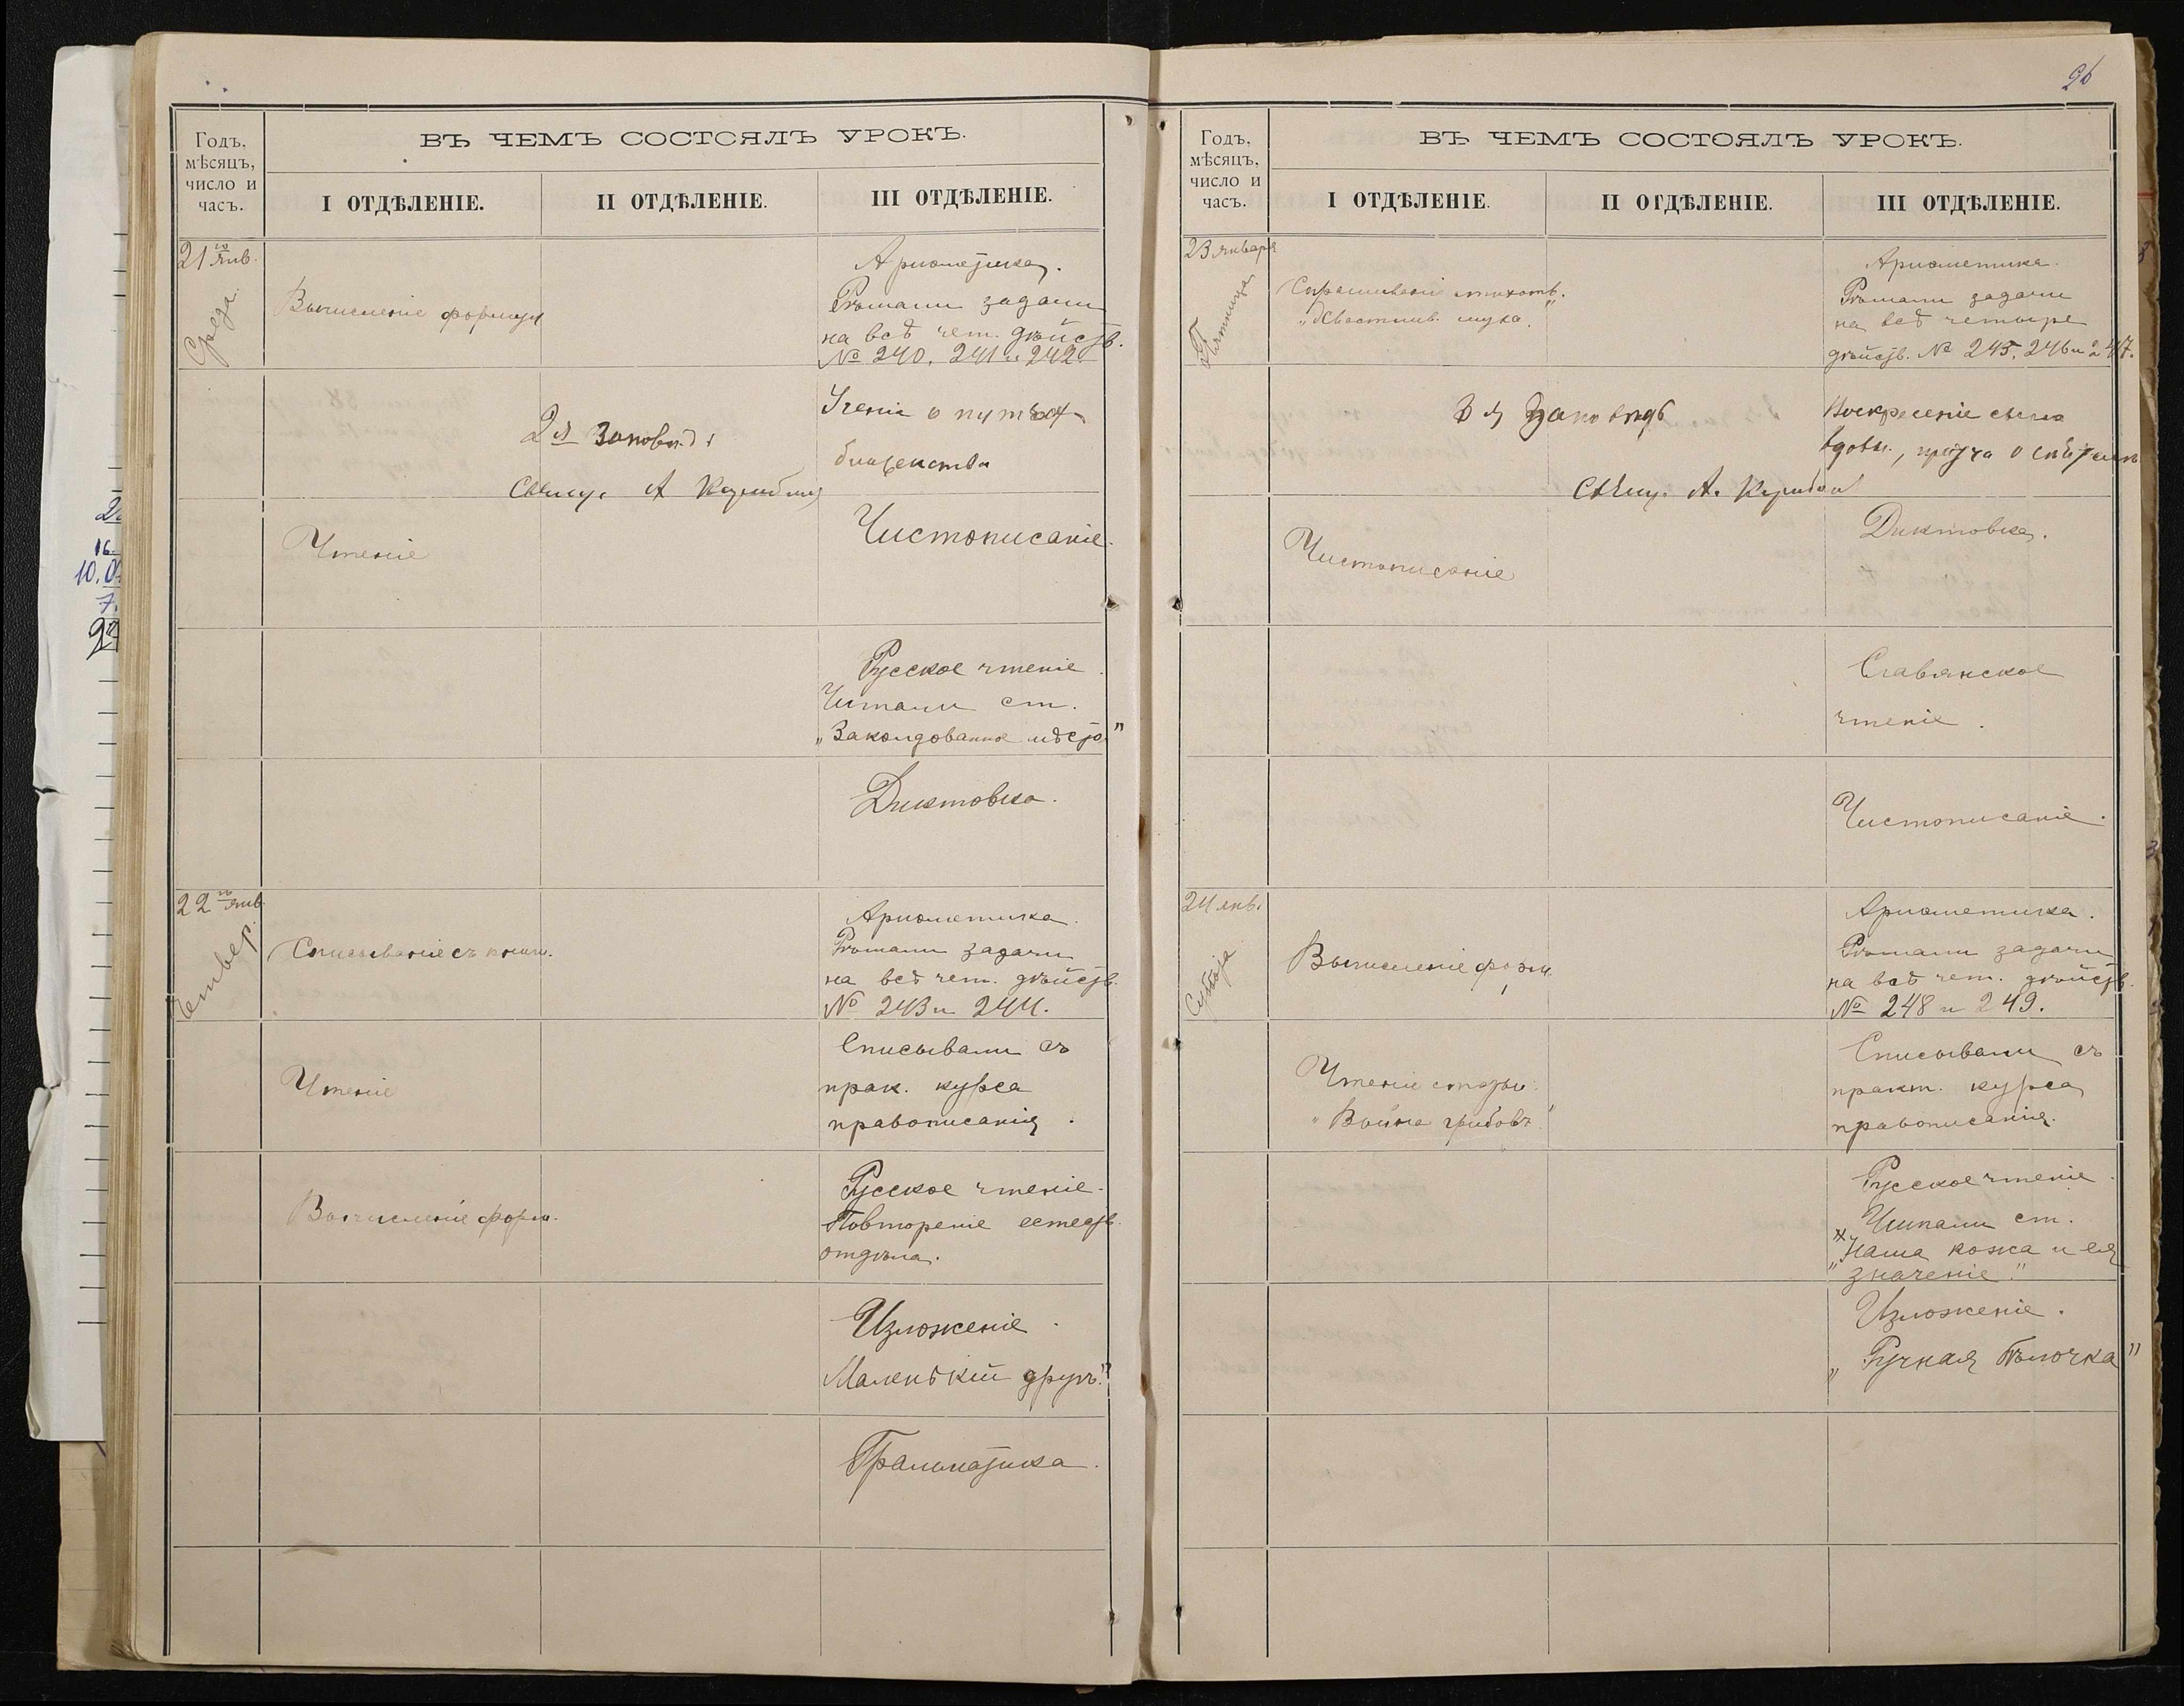 Годъ,
мѣсяцъ,
число и
часъ.
ВЪ ЧЕМЪ СОСТОЯЛЪ УРОКЪ.
I ОТДѢЛЕНІЕ.
II ОТДѢЛЕНІЕ.
III ОТДѢЛЕНІЕ.
21 го янв.
Среда.
Вычисленіе формул
Ариѳметика.
Рѣшали задачи
на всѣ чет. дѣйств.
№ 240, 241 и 242.
2я Заповѣдь
Ученіе о путяхъ
блаженства
Свящ. А
Чтеніе
Чистописаніе.
Русское чтеніе.
Читали ст.
„Заколдованное мѣсто"
Диктовка.
22 го янв.
Четвер.
Списываніе съ книги.
Ариѳметика.
Рѣшали задачи
на всѣ чет. дѣйств.
№ 243 и 244.
Чтеніе
Списывали съ
прак. курса
правописанія.
Вычисленіе форм.
Русское чтеніе.
Повтореніе естеств.
отдѣла.
Изложеніе.
Маленькій другъ."
Грамматика.
96
Годъ,
мѣсяцъ,
число и
часъ.
ВЪ ЧЕМЪ СОСТОЯЛЪ УРОКЪ.
I ОТДѢЛЕНІЕ.
II ОТДѢЛЕНІЕ.
III ОТДѢЛЕНІЕ.
23 января
Пятница
Спрашиваніе стихотв.
„Хвастлив. муха."
Ариѳметика.
Рѣшали задачи
на всѣ четыре
дѣйств. № 245, 246 и 247.
3 я Заповѣдь
Воскресеніе сына
вдовы, притча о сѣятелѣ
Свящ. А.
Чистописаніе
Диктовка.
Славянское
чтеніе.
Чистописаніе.
24 янв.
Суббота
Вычисленіе форм.
Ариѳметика.
Рѣшали задачи
на всѣ чет. дѣйств.
№ 248 и 249.
Чтеніе статьи
„Война грибовъ"
Списывали съ
практ. курса
правописанія.
Русское чтеніе.
Читали ст.
„Наша кожа и ея
значеніе."
Изложеніе.
„Ручная бѣлочка"